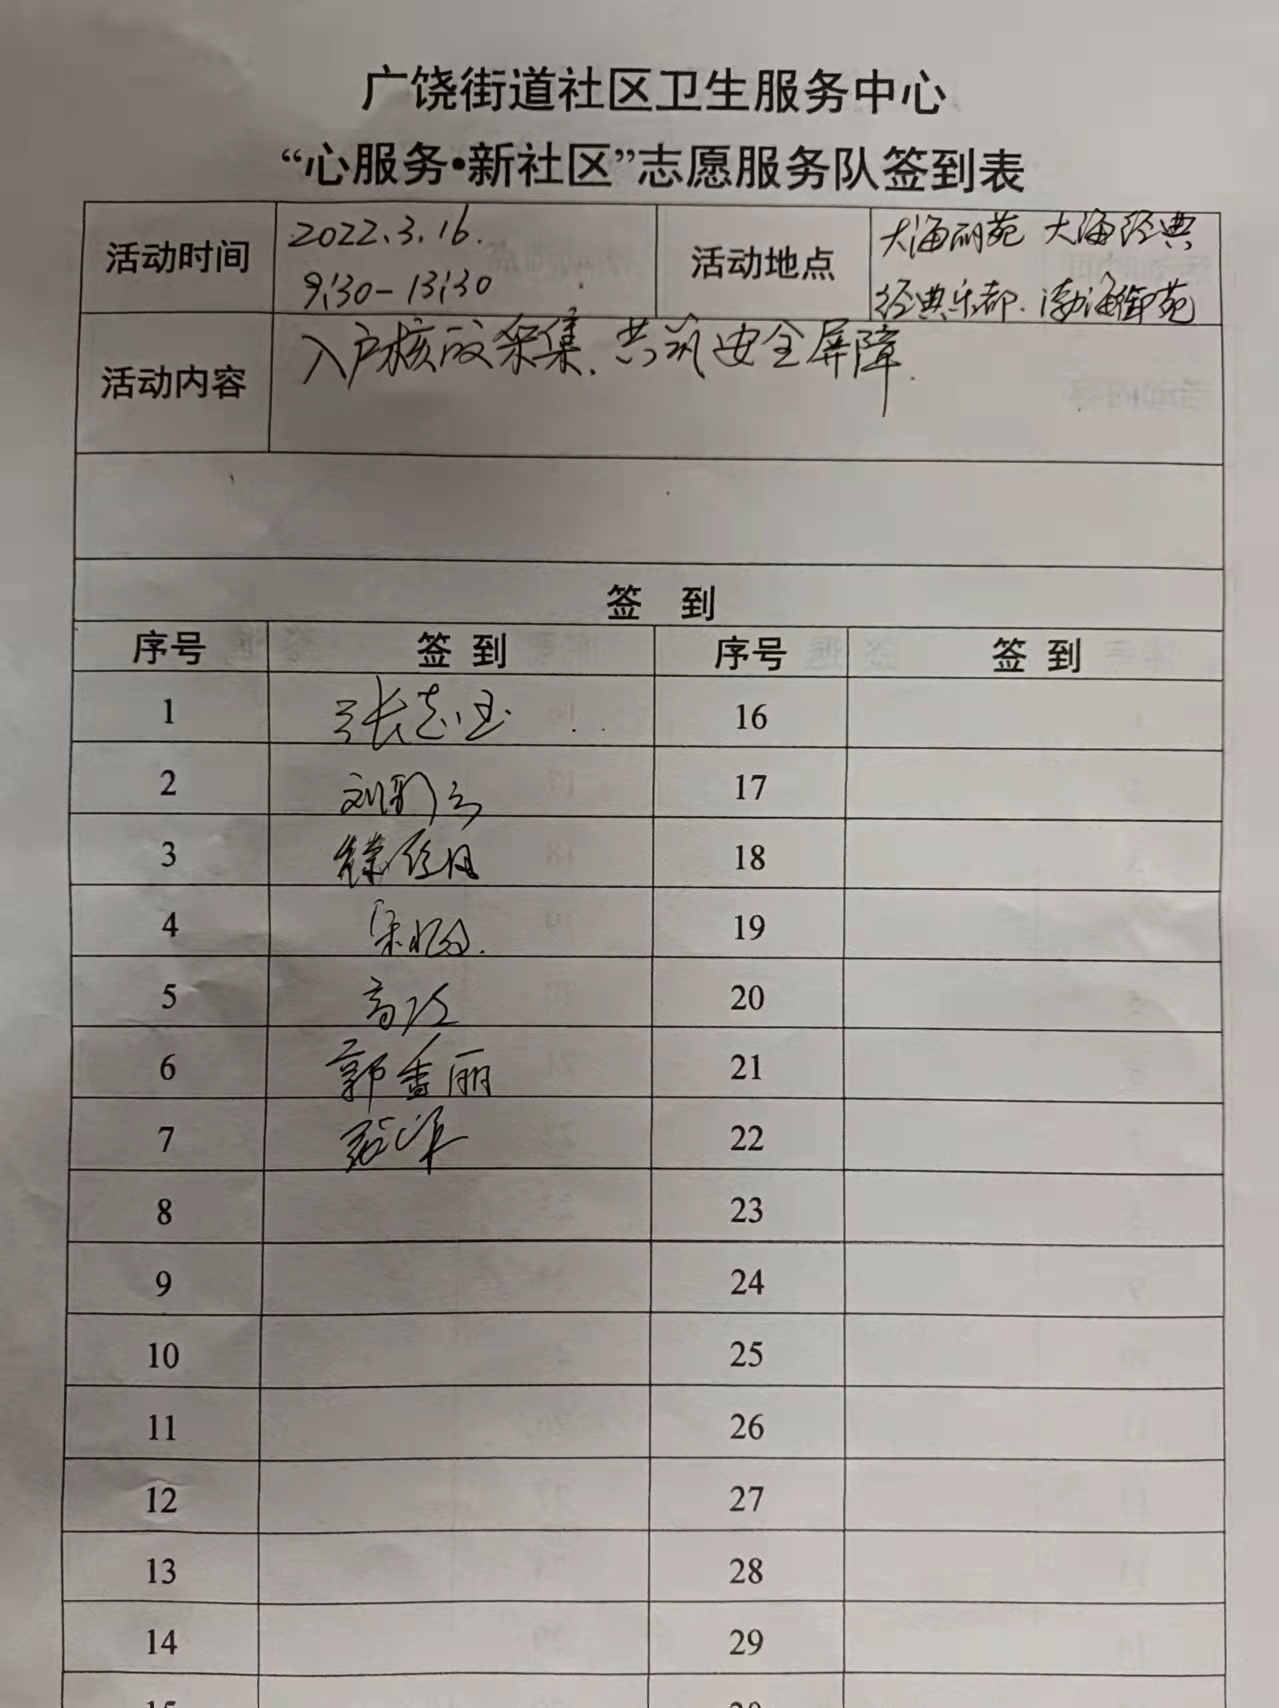 广饶街道社区卫生服务中心
“心服务•新社区”志愿服务队签到表
活动时间 2022.3.16. 活动地点 大海丽苑 大海经典
9:30-13:30 经典乐都. 渤海御苑
活动内容 入户核酸采集.共筑安全屏障.
签 到
序号 签到 序号 签到
1 张志玉 16
2 刘彩云 17
3 18
4 19
5 高 20
6 郭香丽 21
7 22
8 23
9 24
10 25
11 26
12 27
13 28
14 29
15 30